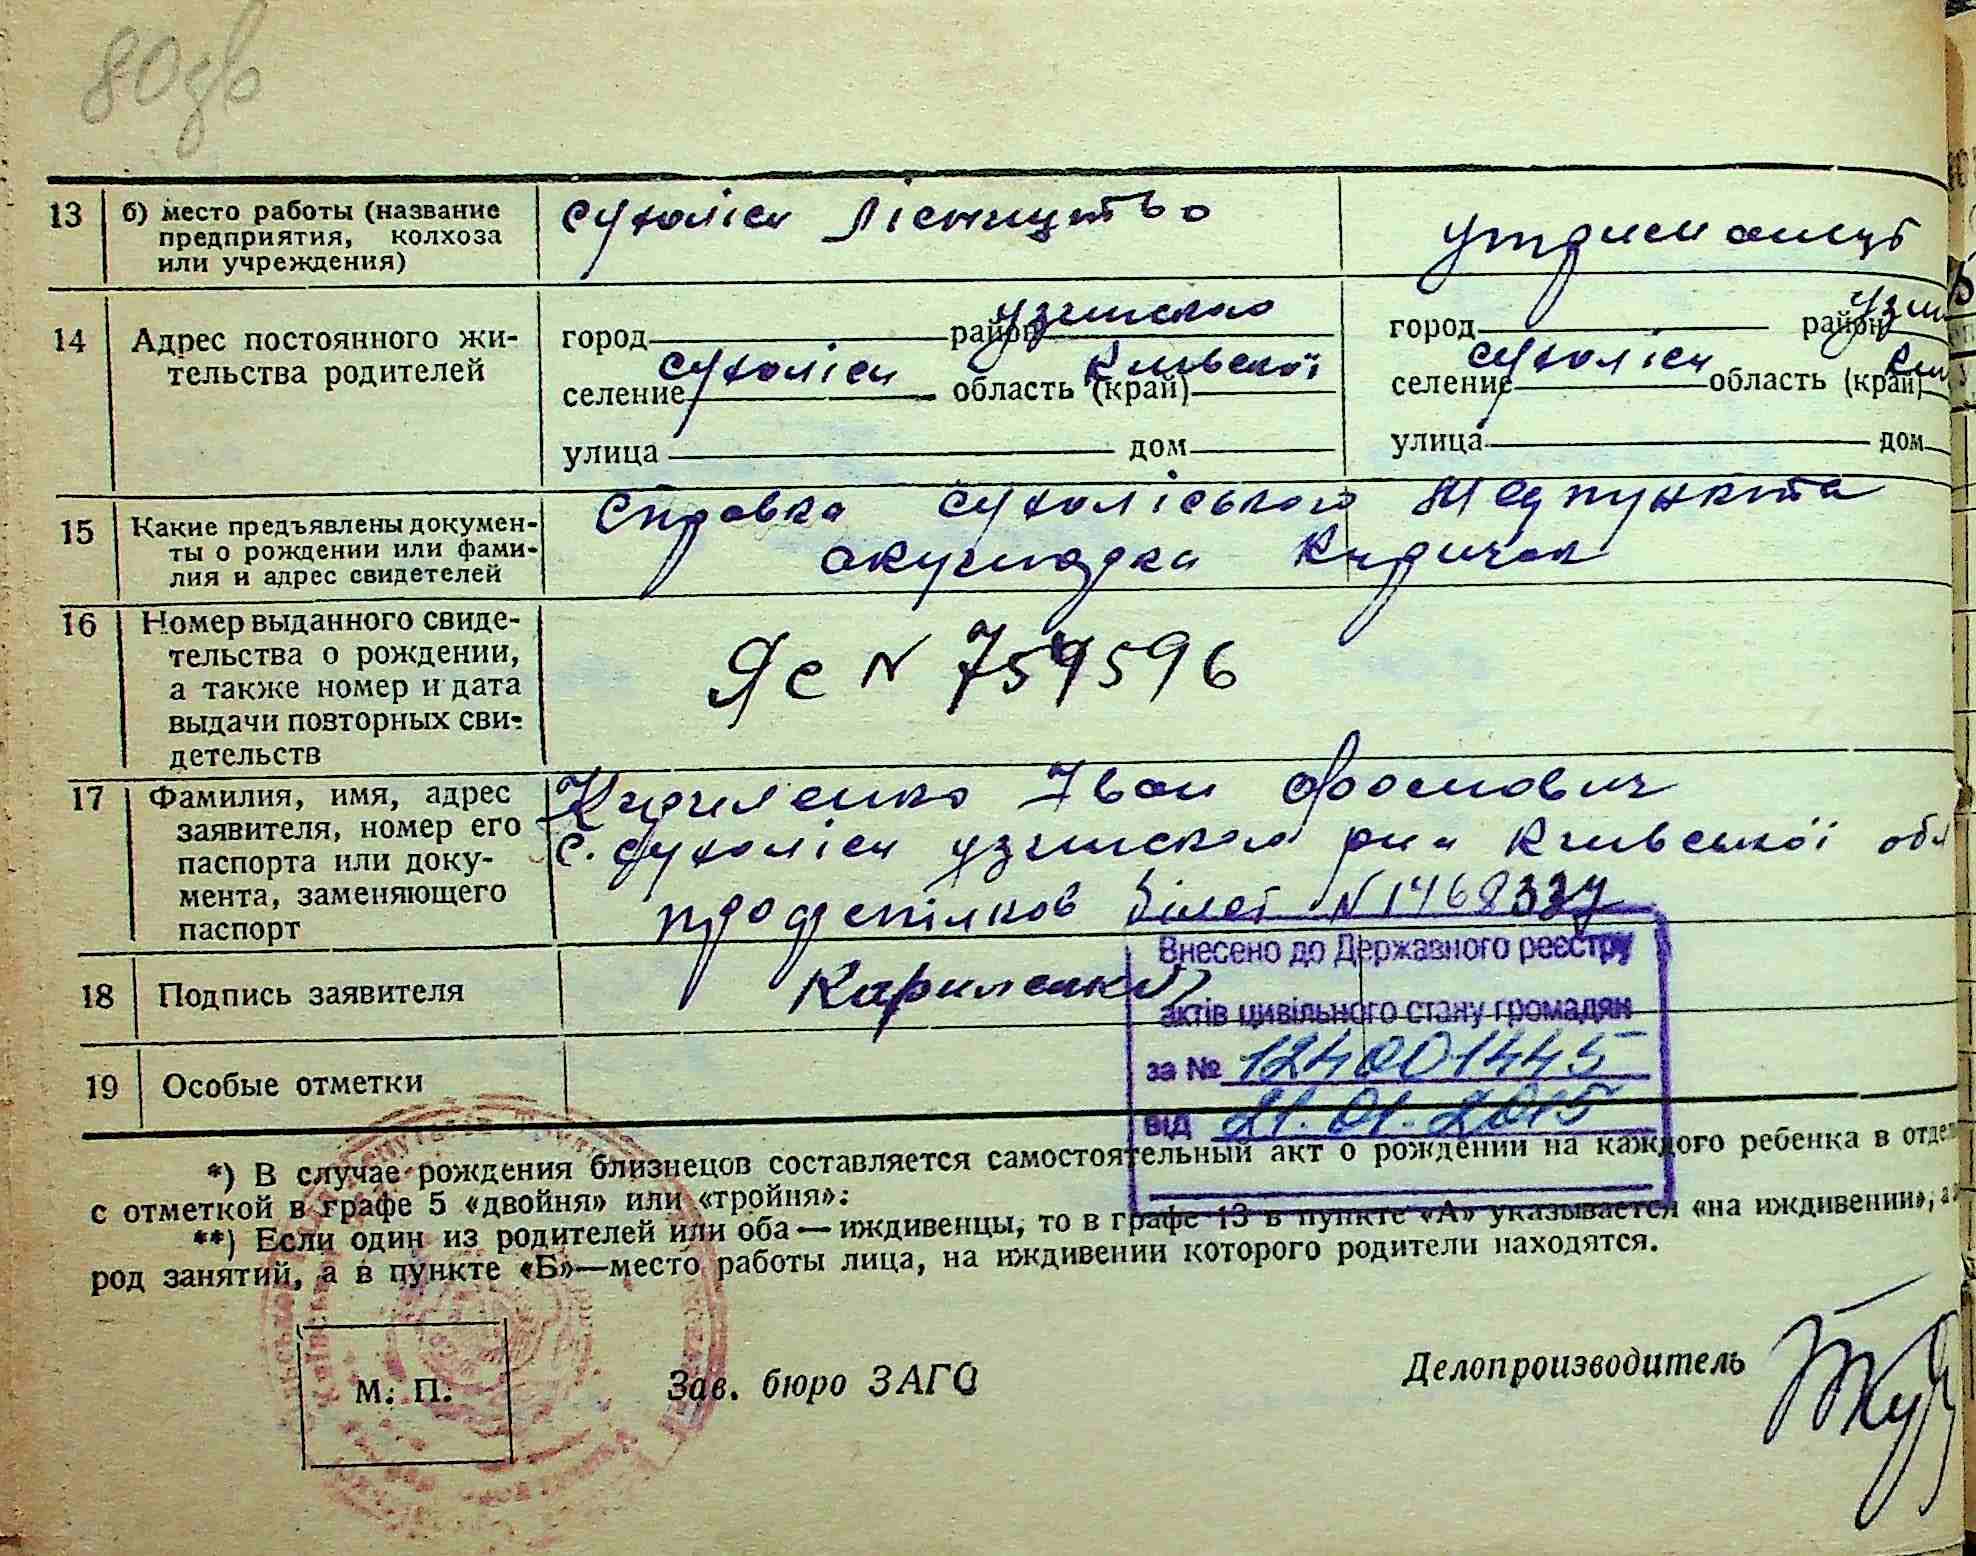 80зв
13 б) место работы (название предприятия, колхоза или учреждения) Сухоліси Лісництво утриманця
14 Адрес постоянного жительства родителей
город район Узинского город район Узин
селение Сухоліси область (край) Київської селение Сухоліси область (край) Киї
улица дом улица дом
15 Какие предъявлены документы о рождении или фамилия и адрес свидетелей
Справка Сухоліського Медпункта
акушерки
16 Номер выданного свидетельства о рождении, а также номер и дата выдачи повторных свидетельств
ЯС N 759596
17 Фамилия, имя, адрес заявителя, номер его паспорта или документа, заменяющего паспорт
Кириленко Іван
с. Сухоліси Узинского р-на Київської обл
профспілков білет N 1468337
18 Подпись заявителя Кириленко
19 Особые отметки
Внесено до Державного реєстру
актів цивільного стану громадян
за № 124001445
від 21.01.2015
*) В случае рождения близнецов составляется самостоятельный акт о рождении на каждого ребенка в отдел
с отметкой в графе 5 «двойня» или «тройня».
**) Если один из родителей или оба — иждивенцы, то в графе 13 в пункте «А» указывается «на иждивении», а
род занятий, а в пункте «Б»—место работы лица, на иждивении которого родители находятся.
М. П. Зав. бюро ЗАГС Делопроизводитель